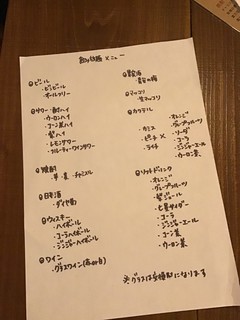 飲み放題メニュー
◎ビール
・ビンビール
・オールフリー
◎サワー・酎ハイ
・ウーロンハイ
・コーン茶ハイ
・緑ハイ
・レモンサワー
◎焼酎
・芋・麦・チャミスル
◎日本酒
◎ウィスキー
・ハイボール
・コーラハイボール
・ジンジャーハイボール
◎ワイン
・グラスワイン(赤or白)
◎マッコリ
・生マッコリ
◎カクテル
・カシス
・ピーチ ×
・ライチ
・オレンジ
・グレープフルーツ
・ソーダ
・コーラ
・ジンジャーエール
・ウーロン茶
◎ソフトドリンク
・オレンジ
・グレープフルーツ
・コーラ
・ジンジャーエール
・コーン茶
・ウーロン茶
※グラスは交換制になります